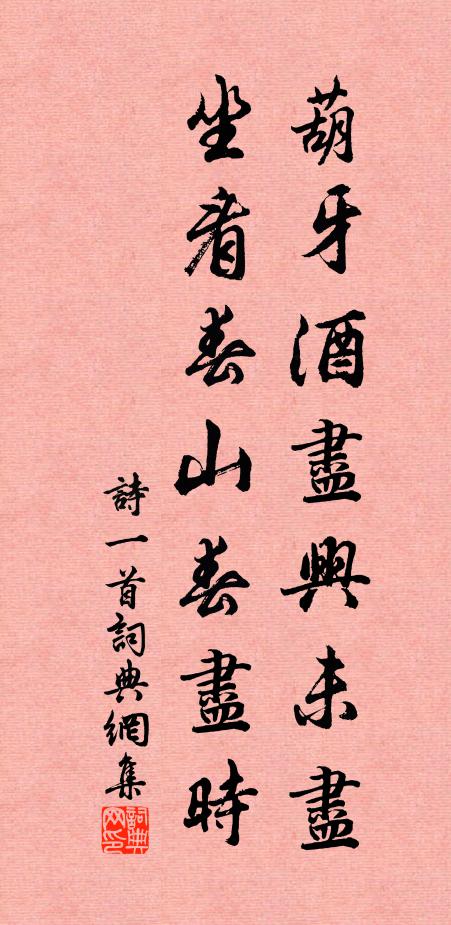 葫牙酒盡興未盡
坐看春山春盡時
詩一首詞典網集
詞典网印